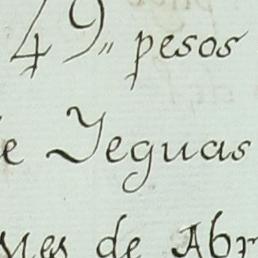 49,, pesos
e Yeguas
de Abr